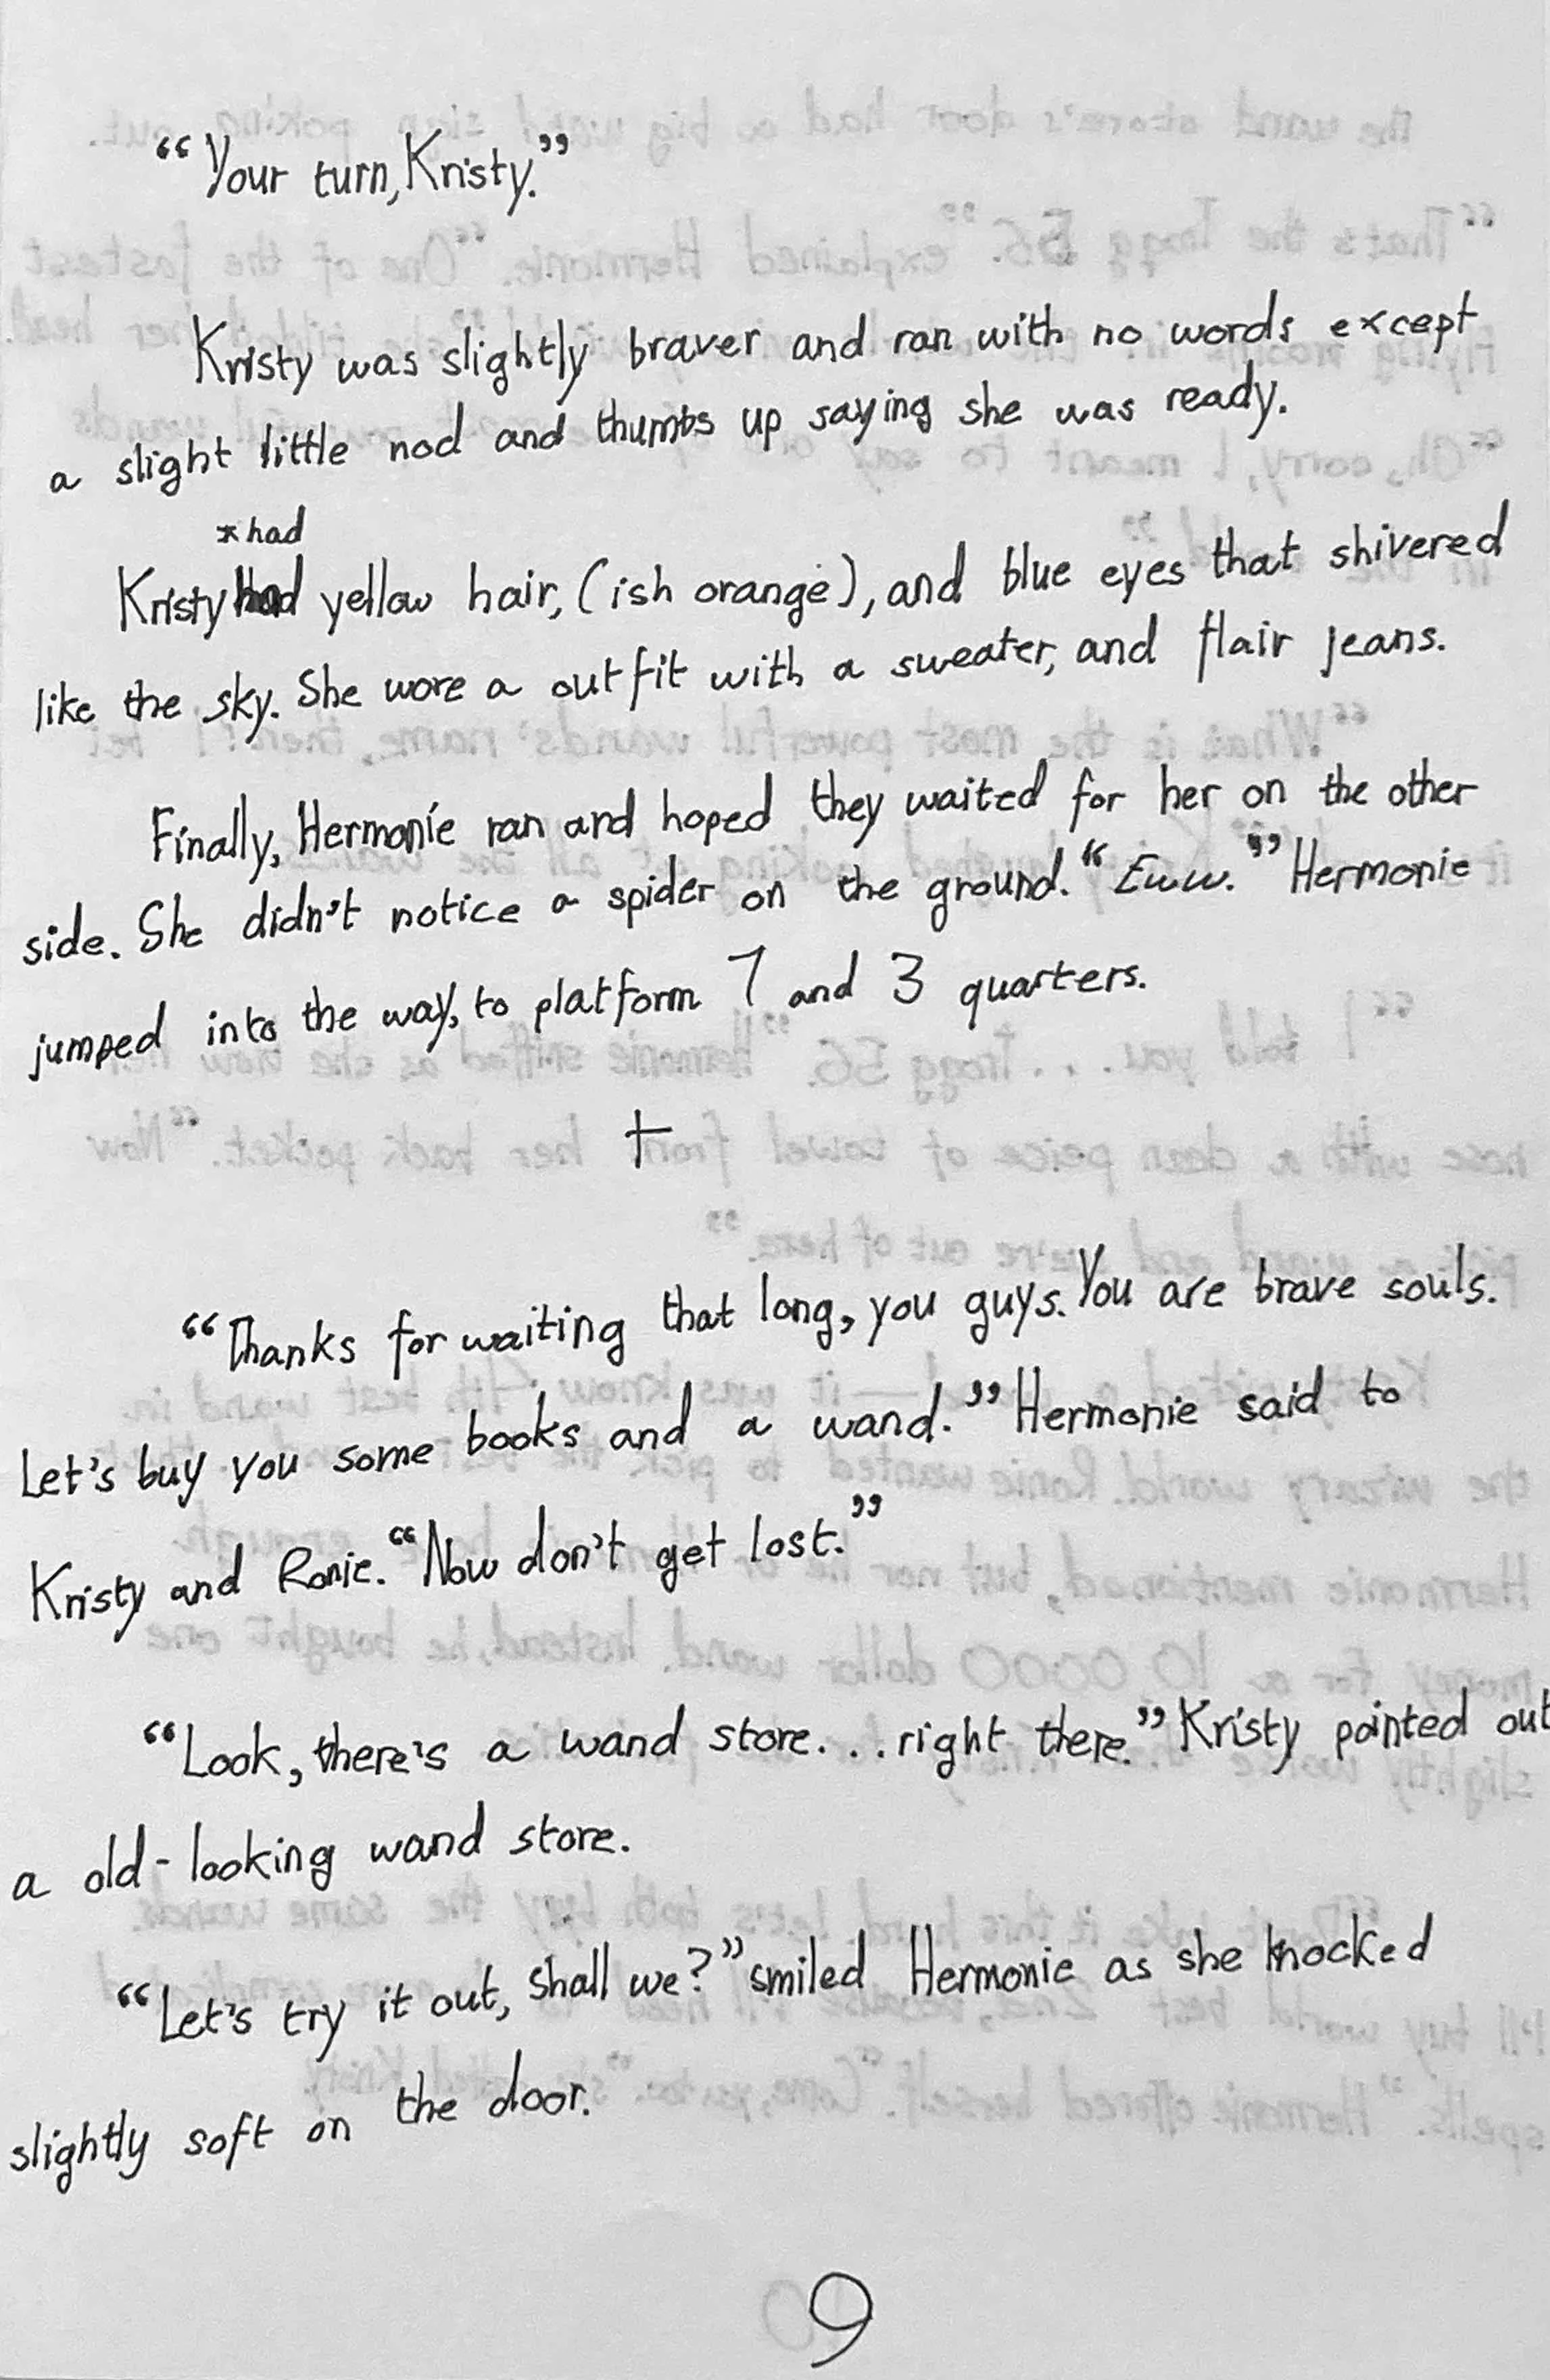 “Your turn, Kristy.”
Kristy was slightly braver and ran with no words except
a slight little nod and thumbs up saying she was ready.
*had
Kristy had yellow hair, (ish orange), and blue eyes that shivered
like the sky. She wore a outfit with a sweater, and flair jeans.
Finally, Hermonie ran and hoped they waited for her on the other
side. She didn't notice a spider on the ground. “Eww.” Hermonie
jumped into the way, to platform 7 and 3 quarters.
“Thanks for waiting that long, you guys. You are brave souls.
Let's buy you some books and a wand.” Hermonie said to
Kristy and Ronie. “Now don't get lost.”
“Look, there's a wand store. . . right there.” Kristy pointed out
a old-looking wand store.
“Let's try it out, shall we?” smiled Hermonie as she knocked
slightly soft on the door.
9